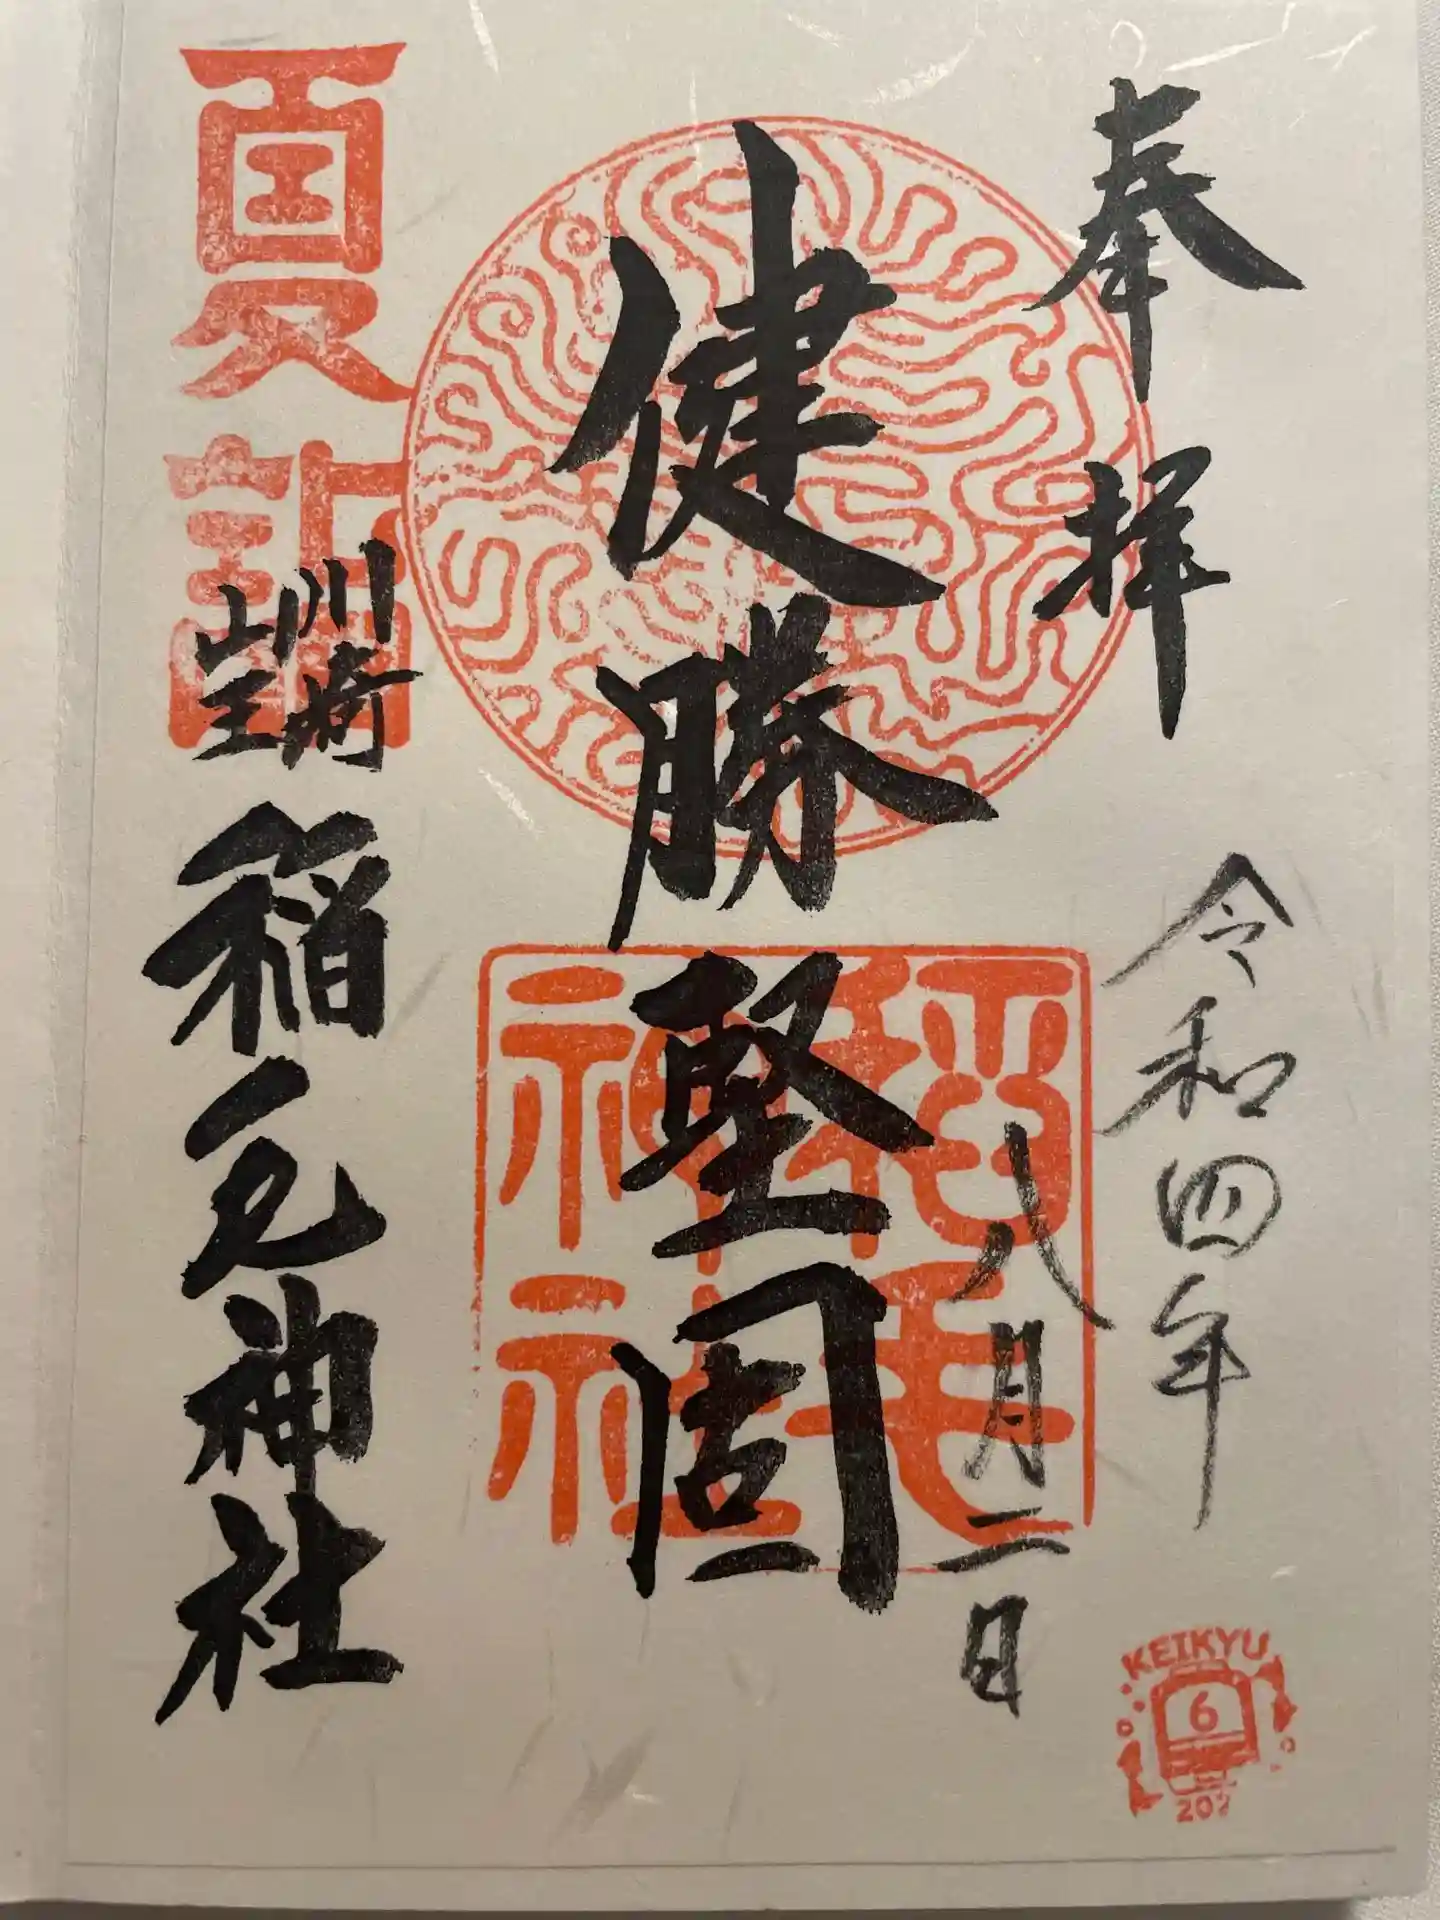 奉拝
令和四年
八月二日
健勝堅固
稲毛
神社
夏詣
川崎
山王
稲毛神社
KEIKYU
6